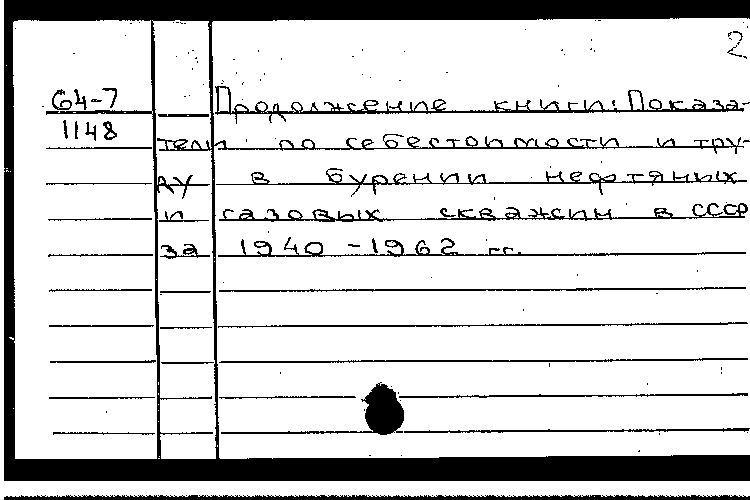 2
64-7 Продолжение книги: Показа-
1148 тели по себестоимости и тру-
ду в бурении нефтяных
и газовых скважин в СССР
за 1940-1962 гг.